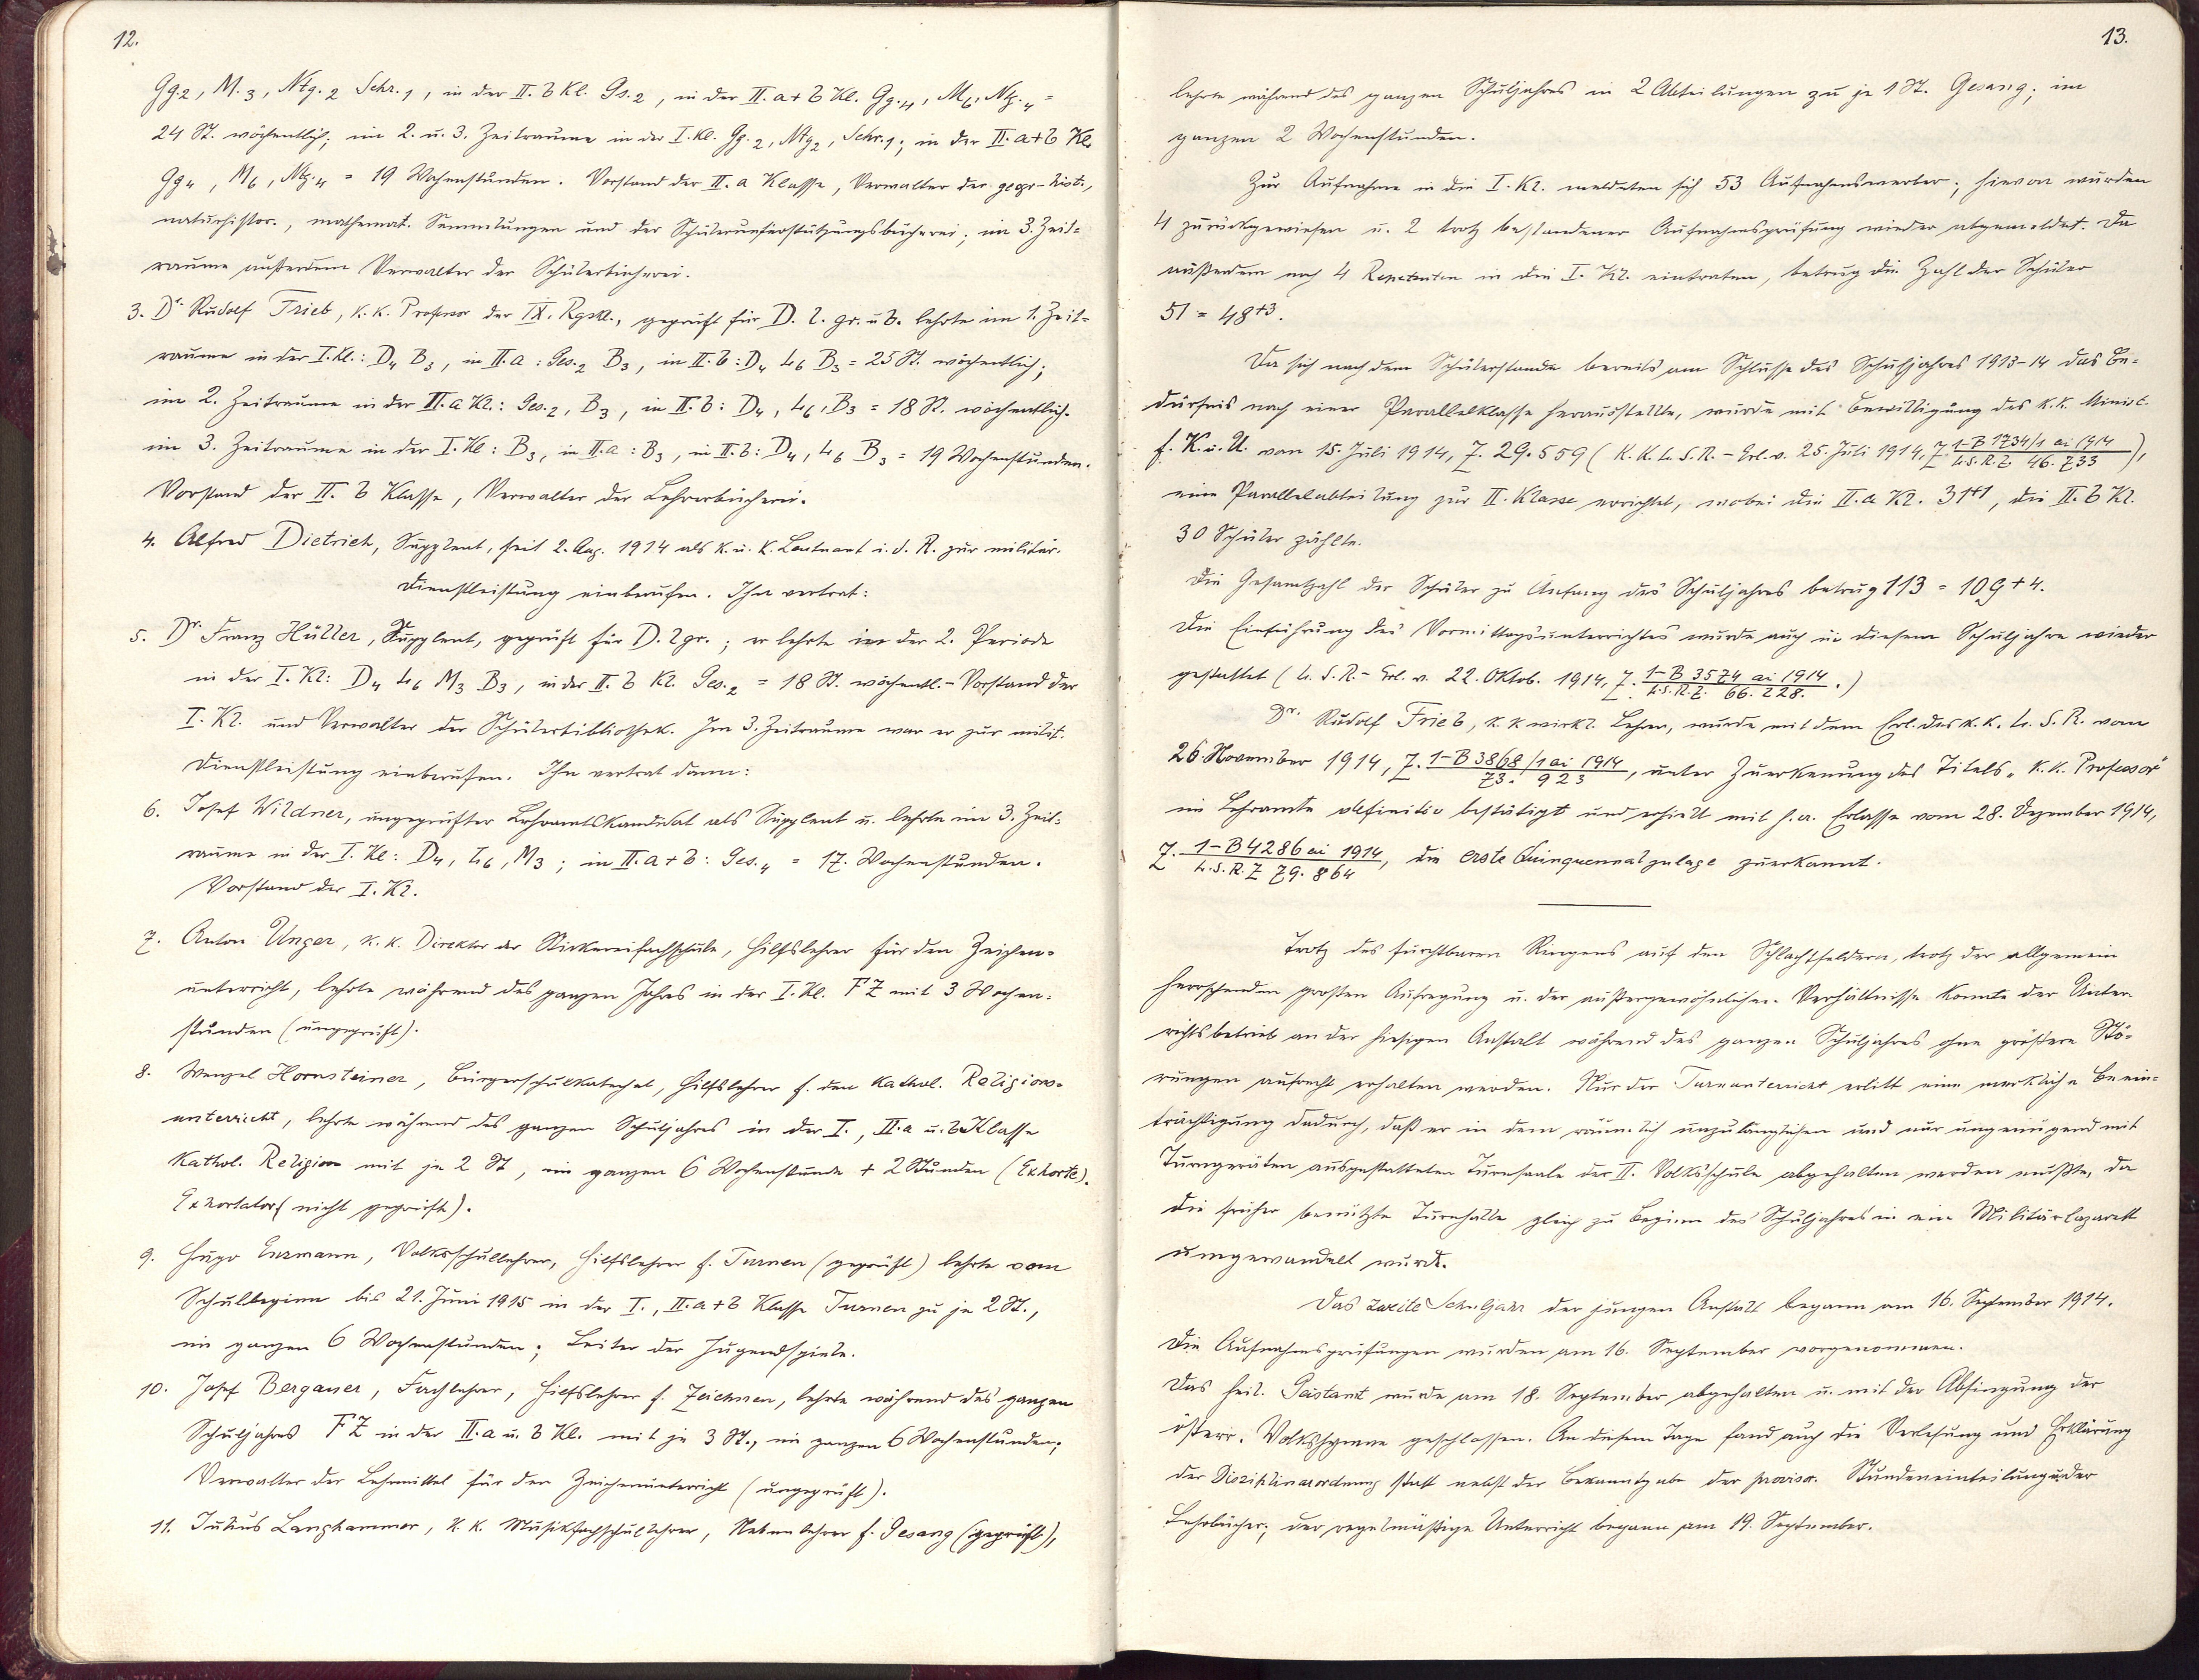 12.
Gg.2, M.3, Ntg.2 Schr.1, in der II. b Kl. Gs.2, in der II. a + b Kl. Gg.4, M6, Ntg.4 =
24 St. wöchentlich; im 2. u. 3. Zeitraume in der I. Kl. Gg.2, Ntg2, Schr.1; in der II. a+b Kl.
Gg4, M6, Ntg.4 = 19 Wochenstunden. Vorstand der II. a Klasse, Verwalter der geogr-hist.,
naturhistor., mathemat. Sammlungen und der Schülerunterstützungsbücherei; im 3. Zeit=
raume außerdem Verwalter der Schülerbücherei.
3. Dr. Rudolf Frieb, k. k. Professor der IX. Rgskl., geprüft für D. l. gr. u B. lehrte im 1. Zeit=
raume in der I. Kl.: D4 B3, in II. a: Ges.2 B3, in II. b: D4 L6 B3 = 25 St. wöchentlich;
im 2. Zeitraume in der II. a Kl.: Ges.2, B3, in II. b: D4, L6, B3 = 18 St. wöchentlich.
im 3. Zeitraume in der I. Kl: B3, in II. a: B3, in II. b: D4, L6 B3 = 19 Wochenstunden.
Vorstand der II. b Klasse, Verwalter der Lehrerbücherei.
4. Alfred Dietrich, Supplent, seit 2. Aug. 1914 als k. u. k. Leutnant i. d. R. zur militär.
Dienstleistung einberufen. Ihn vertrat:
5. Dr. Franz Hüller, Supplent, geprüft für D. l gr.; er lehrte in der 2. Periode
in der I. Kl: D4 L6 M3 B3, in der II. b Kl. Ges.2 = 18 St. wöchentl. - Vorstand der
I. Kl. und Verwalter der Schülerbibliothek. Im 3. Zeitraume war er zur milit.
Dienstleistung einberufen. Ihn vertrat dann:
6. Josef Wildner, ungeprüfter Lehramtskandidat als Supplent u. lehrte im 3. Zeit=
raume in der I. Kl: D4, L6, M3; in II. a + b: Ges.4 = 17. Wochenstunden.
Vorstand der I. Kl.
7. Anton Unger, k. k. Direktor der Wirkereifachschule, Hilfslehrer für den Zeichen=
unterricht, lehrte während des ganzen Jahres in der I. Kl. FZ mit 3 Wochen=
stunden (ungeprüft).
8. Wenzel Hornsteiner, Bürgerschulkatechet, Hilfslehrer f. den kathol. Religions=
unterricht, lehrte während des ganzen Schuljahres in der I., II. a u. b Klasse
kathol. Religion mit je 2 St, im ganzen 6 Wochenstunde + 2 Stunden (Exhorte).
Exhortator (nicht geprüft).
9. Hugo Enzmann, Volksschullehrer, Hilfslehrer f. Turnen (geprüft) lehrte vom
Schulbeginn bis 21. Juni 1915 in der I., II. a + b Klasse Turnen zu je 2 St.,
im ganzen 6 Wochenstunden; Leiter der Jugendspiele.
10. Josef Bergauer, Fachlehrer, Hilfslehrer f. Zeichnen, lehrte während des ganzen
Schuljahres FZ in der II. a u. b Kl. mit je 3 St., im ganzen 6 Wochenstunden.
Verwalter der Lehrmittel für den Zeichenunterricht (ungeprüft).
11. Julius Langhammer, k. k. Musikfachschullehrer, Nebenlehrer f. Gesang (geprüft),
13.
lehrte während des ganzen Schuljahres in 2 Abteilungen zu je 1 St. Gesang; im
ganzen 2 Wochenstunden.
Zur Aufnahme in die I. Kl. meldeten sich 53 Aufnahmswerber; hievon wurden
4 zurückgewiesen u. 2 trotz bestandener Aufnahmsprüfung wieder abgemeldet. Da
außerdem noch 4 Repetenten in die I. Kl. eintraten, betrug die Zahl der Schüler
51 = 48+3.
Da sich nach dem Schülerstande bereits am Schlusse des Schuljahres 1913-14 das Be=
dürfnis nach einer Parallelklasse herausstellte, wurde mit Bewilligung des k. k. Minist.
f. K. u. U. vom 15. Juli 1914, Z. 29.559 (K. K. L. S. R. - Erl. v. 25. Juli 1914, Z. 1-B 1734/1 ai 1914 / L.S.R.Z. 46.733),
eine Parallelabteilung zur II. Klasse errichtet, wobei die II. a Kl. 31+1, die II. b Kl.
30 Schüler zählte.
Die Gesamtzahl der Schüler zu Anfang des Schuljahres betrug 113 = 109+4.
Die Einführung des Vormittagsunterrichtes wurde auch in diesem Schuljahre wieder
gestattet (L. S. R. - Erl. v. 22. Oktob. 1914, Z. 1-B 3574 ai 1914 / L.S.R.Z. 66.228.)
Dr. Rudolf Frieb, k. k wirkl. Lehrer, wurde mit dem Erl. des k. k. L. S. R. vom
26 November 1914, Z. 1-B 3868/1 ai 1914 / 73.923, unter Zuerkennung des Titels „k. k. Professor"
im Lehramte definitiv bestätigt und erhielt mit h. a. Erlasse vom 28. Dezember 1914,
Z. 1-B 4286 ai 1914 / L.S.R.Z 79.864, die erste Quinquennalzulage zuerkannt.
Trotz des furchtbaren Ringens auf den Schlachtfeldern, trotz der allgemein
herrschenden großen Aufregung u. der außergewöhnlichen Verhältnisse konnte der Unter=
richtsbetrieb an der hiesigen Anstalt während des ganzen Schuljahres ohne größere Stö=
rungen aufrecht erhalten werden. Nur der Turnunterricht erlitt eine merkliche Beein=
trächtigung dadurch, daß er in dem räumlich unzulänglichen und nur ungenügend mit
Turngeräten ausgestatteten Turnsaale der II. Volksschule abgehalten werden mußte, da
die früher benützte Turnhalle gleich zu Beginn des Schuljahres in ein Militärlazarett
umgewandelt wurde.
Das zweite Schuljahr der jungen Anstalt begann am 16. September 1914.
Die Aufnahmsprüfungen wurden am 16. September vorgenommen.
Das heil. Geistamt wurde am 18. September abgehalten u. mit der Absingung der
österr. Volkshymne geschlossen. An diesem Tage fand auch die Verlesung und Erklärung
der Disziplinarordnung statt nebst der Bekanntgabe der provisor. Stundeneinteilung u. der
Lehrbücher; der regelmäßige Unterricht begann am 19. September.